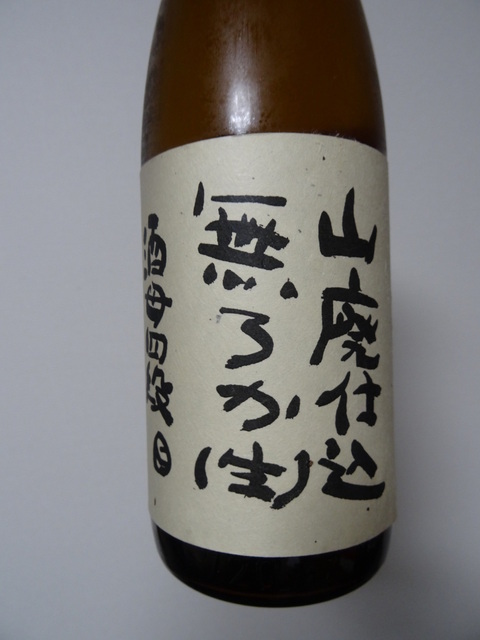 山廃仕込
無ろか(生)
酒母四段